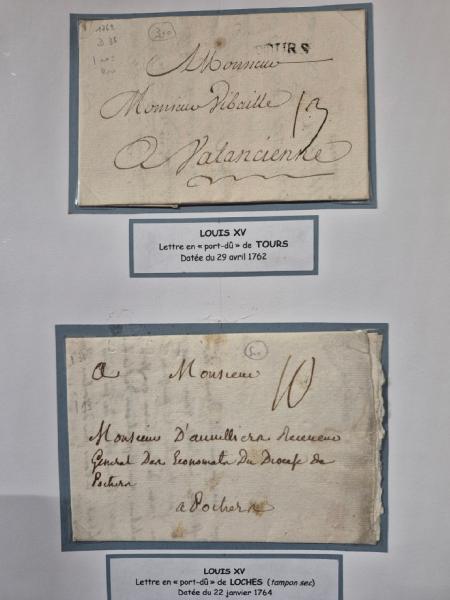 1762
300
TOURS
A Monsieur
Monsieur Vibaille
13
A Valancienne
LOUIS XV
Lettre en « port-dû » de TOURS
Datée du 29 avril 1762
500
A Monsieur
10
Monsieur D'auvilliers Receveur
General Des Economats Du Diocese de
Poitiers
a Poitiers
LOUIS XV
Lettre en « port-dû » de LOCHES (tampon sec)
Datée du 22 janvier 1764